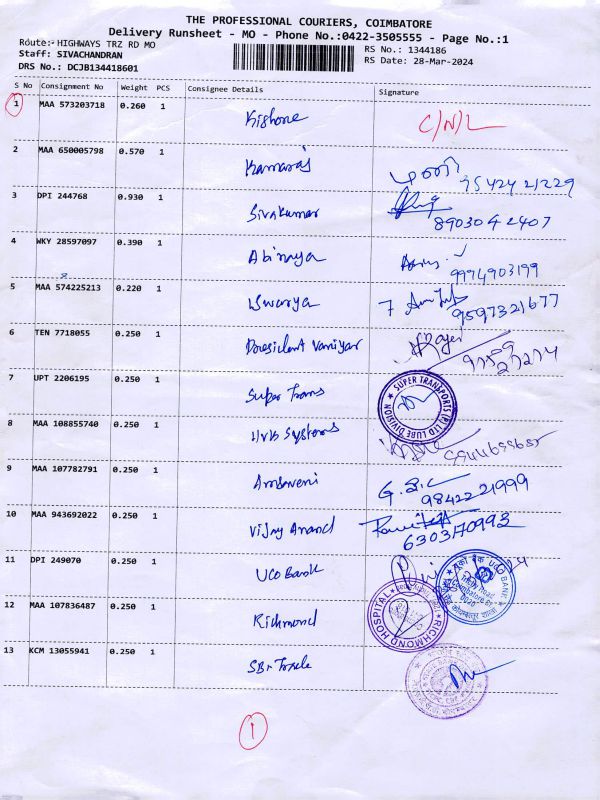 THE PROFESSIONAL COURIERS, COIMBATORE
Delivery Runsheet - MO - Phone No.:0422-3505555 - Page No.:1
Route:- HIGHWAYS TRZ RD MO
RS No.: 1344186
Staff: SIVACHANDRAN
RS Date: 28-Mar-2024
DRS No.: DCJB134418601
S No Consignment No Weight PCS Consignee Details Signature
1 MAA 573203718 0.260 1 Kishore C/N/L
2 MAA 650005798 0.570 1 Kamaraj
3 DPI 244768 0.930 1 Sivakumar
8903042407
4 WKY 28597097 0.390 1 Abinaya
9974903199
5 MAA 574225213 0.220 1 Iswarya
9597321677
6 TEN 7718055 0.250 1 President Vaniyar
7 UPT 2206195 0.250 1 Super Trans
SUPER TRANSPORTS (P) LTD LUBE DIVISION
8 MAA 108855740 0.250 1 Systems
9 MAA 107782791 0.250 1
9842221999
10 MAA 943692022 0.250 1 Vijay Anand
6303170993
11 DPI 249070 0.250 1 UCO Bank
यूको बैंक UCO BANK
12 MAA 107836487 0.250 1 Richmond
RICHMOND HOSPITAL
13 KCM 13055941 0.250 1 SBI Trade
1